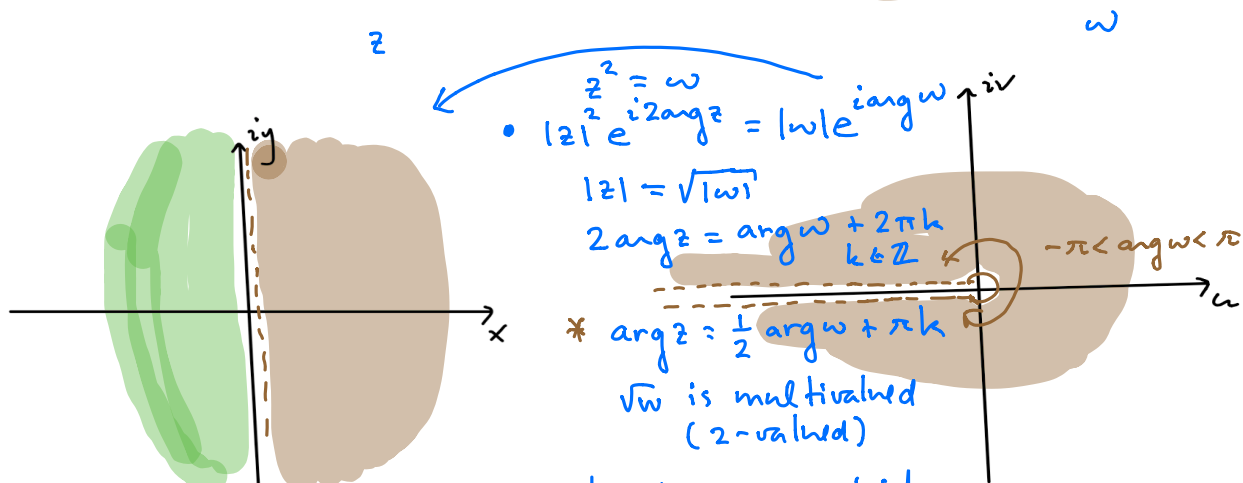 z
w
z² = w
iv
• |z|² e^{i2argz} = |w|e^{iargw}
iy
|z| = √|w|
2argz = argw + 2πk
k ∈ ℤ
-π< argw < π
u
x
* argz = 1/2 argw + πk
√w is multivalued
(2-valued)